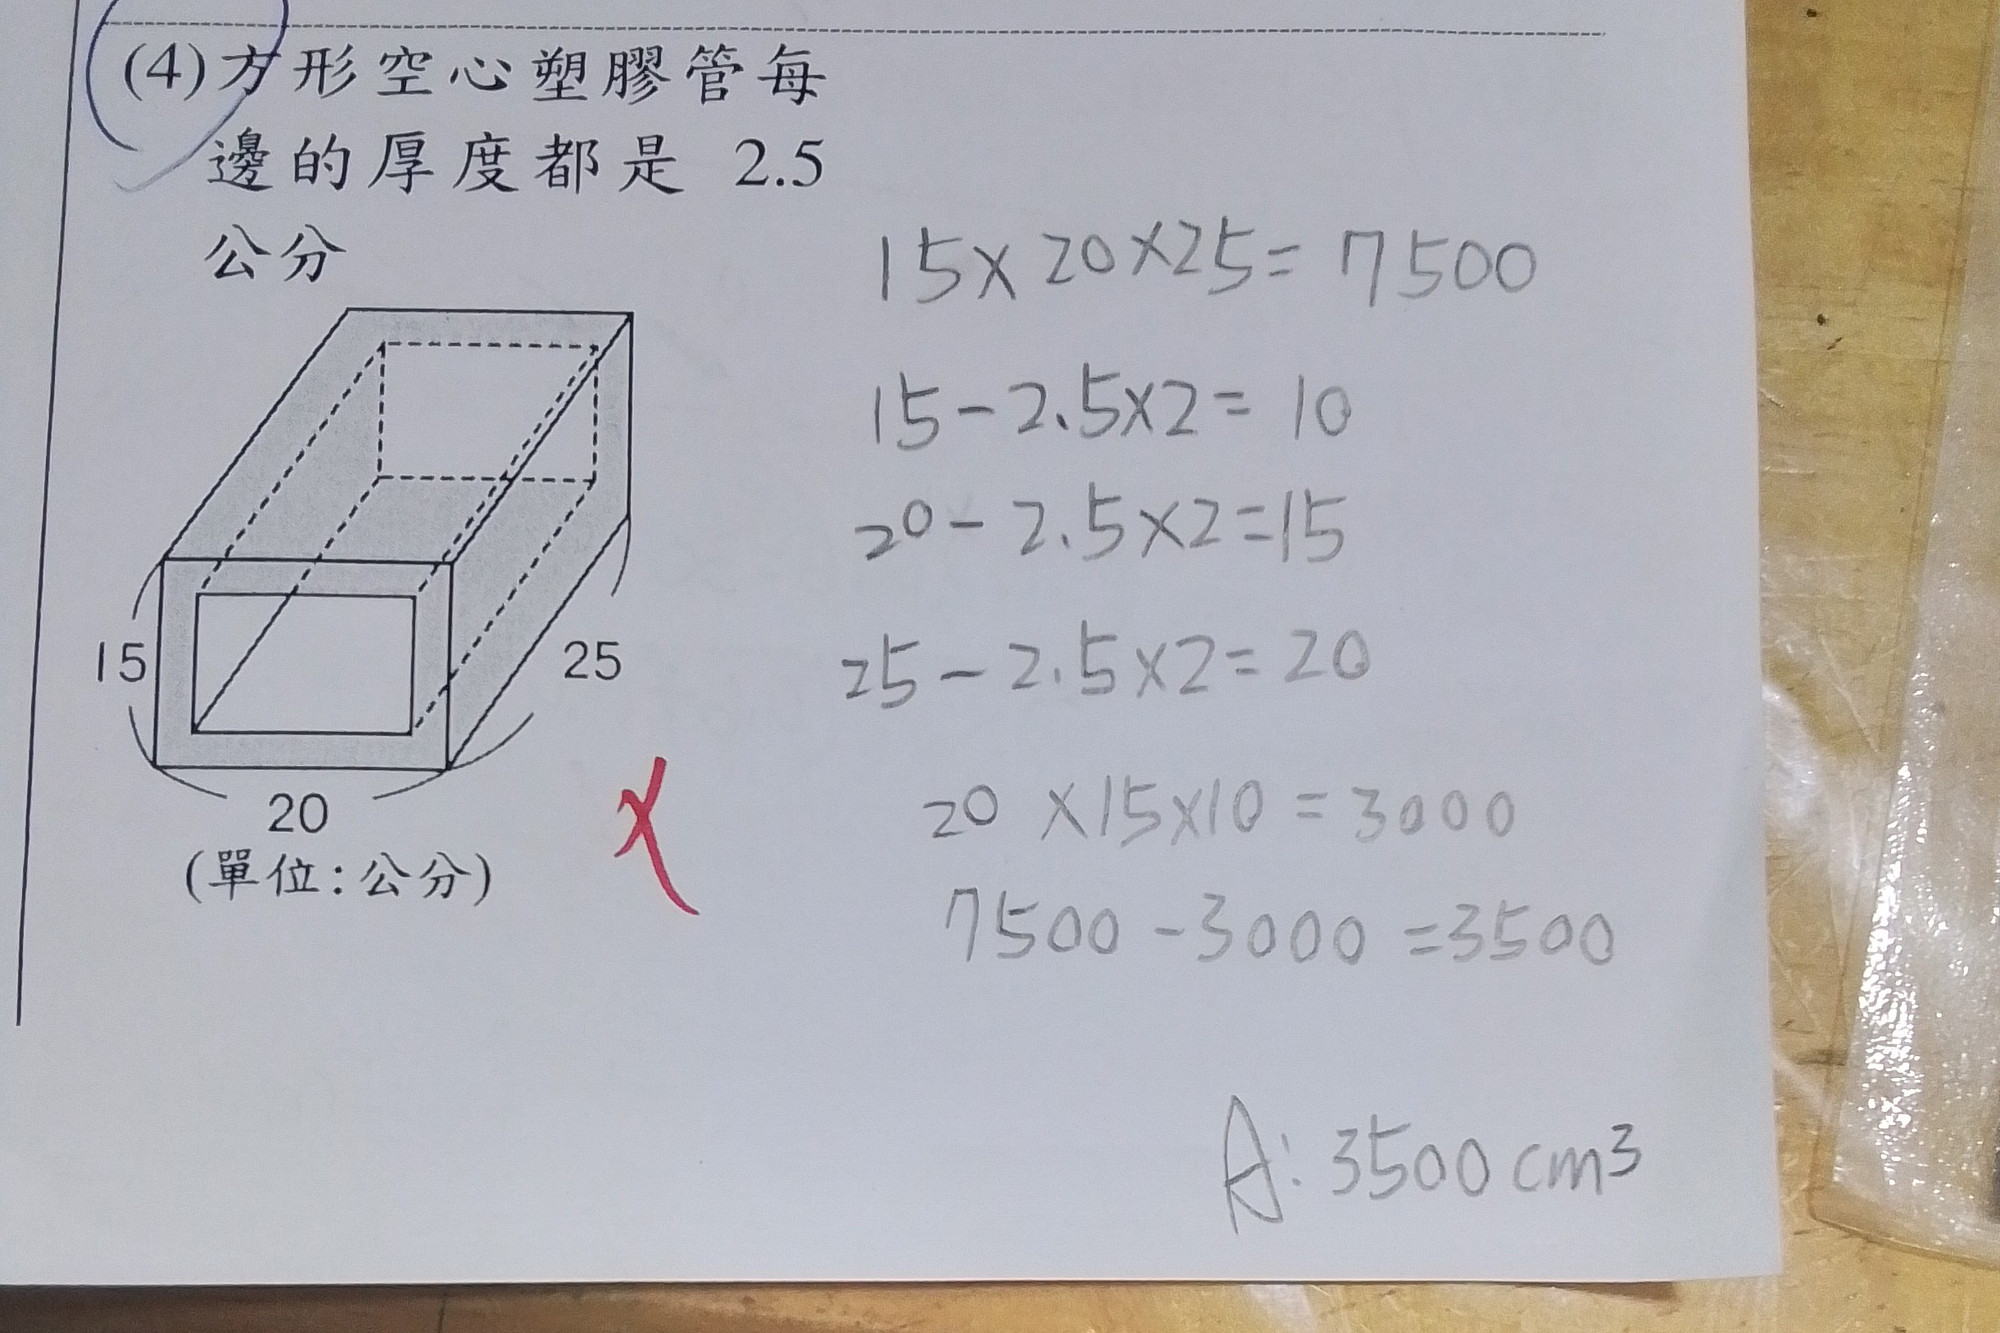 (4)方形空心塑膠管每
邊的厚度都是 2.5
公分
15
25
20
(單位:公分)
15×20×25=7500
15-2.5×2=10
20-2.5×2=15
25-2.5×2=20
20×15×10=3000
7500-3000=3500
A:3500cm³